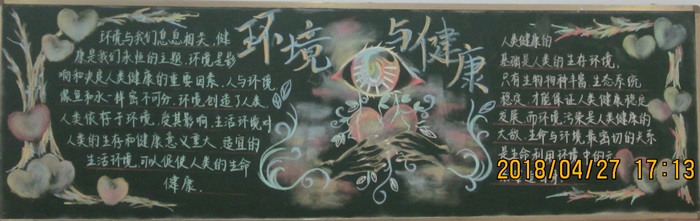 环境与健康
环境与我们息息相关,健
康是我们永恒的主题,环境是影
响和决定人类健康的重要因素,人与环境
像鱼和水一样密不可分,环境创造了人类
人类依存于环境,受其影响,生活环境对
人类的生存和健康意义重大,适宜的
生活环境,可以促使人类的生命
健康.
人类健康的
基础是人类的生存环境,
只有生物物种丰富,生态系统
稳定,才能保证人类健康稳定
发展,而环境污染是人类健康的
大敌,生命与环境最密切的关系
是生命利用环境中的元
2018/04/27 17:13